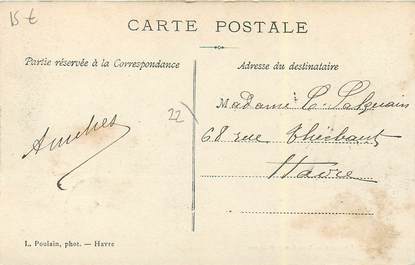 15 €
CARTE POSTALE
Partie réservée à la Correspondance
Adresse du destinataire
Madame P.
68 rue Thiébaut
Havre
22)
L. Poulain, phot. — Havre